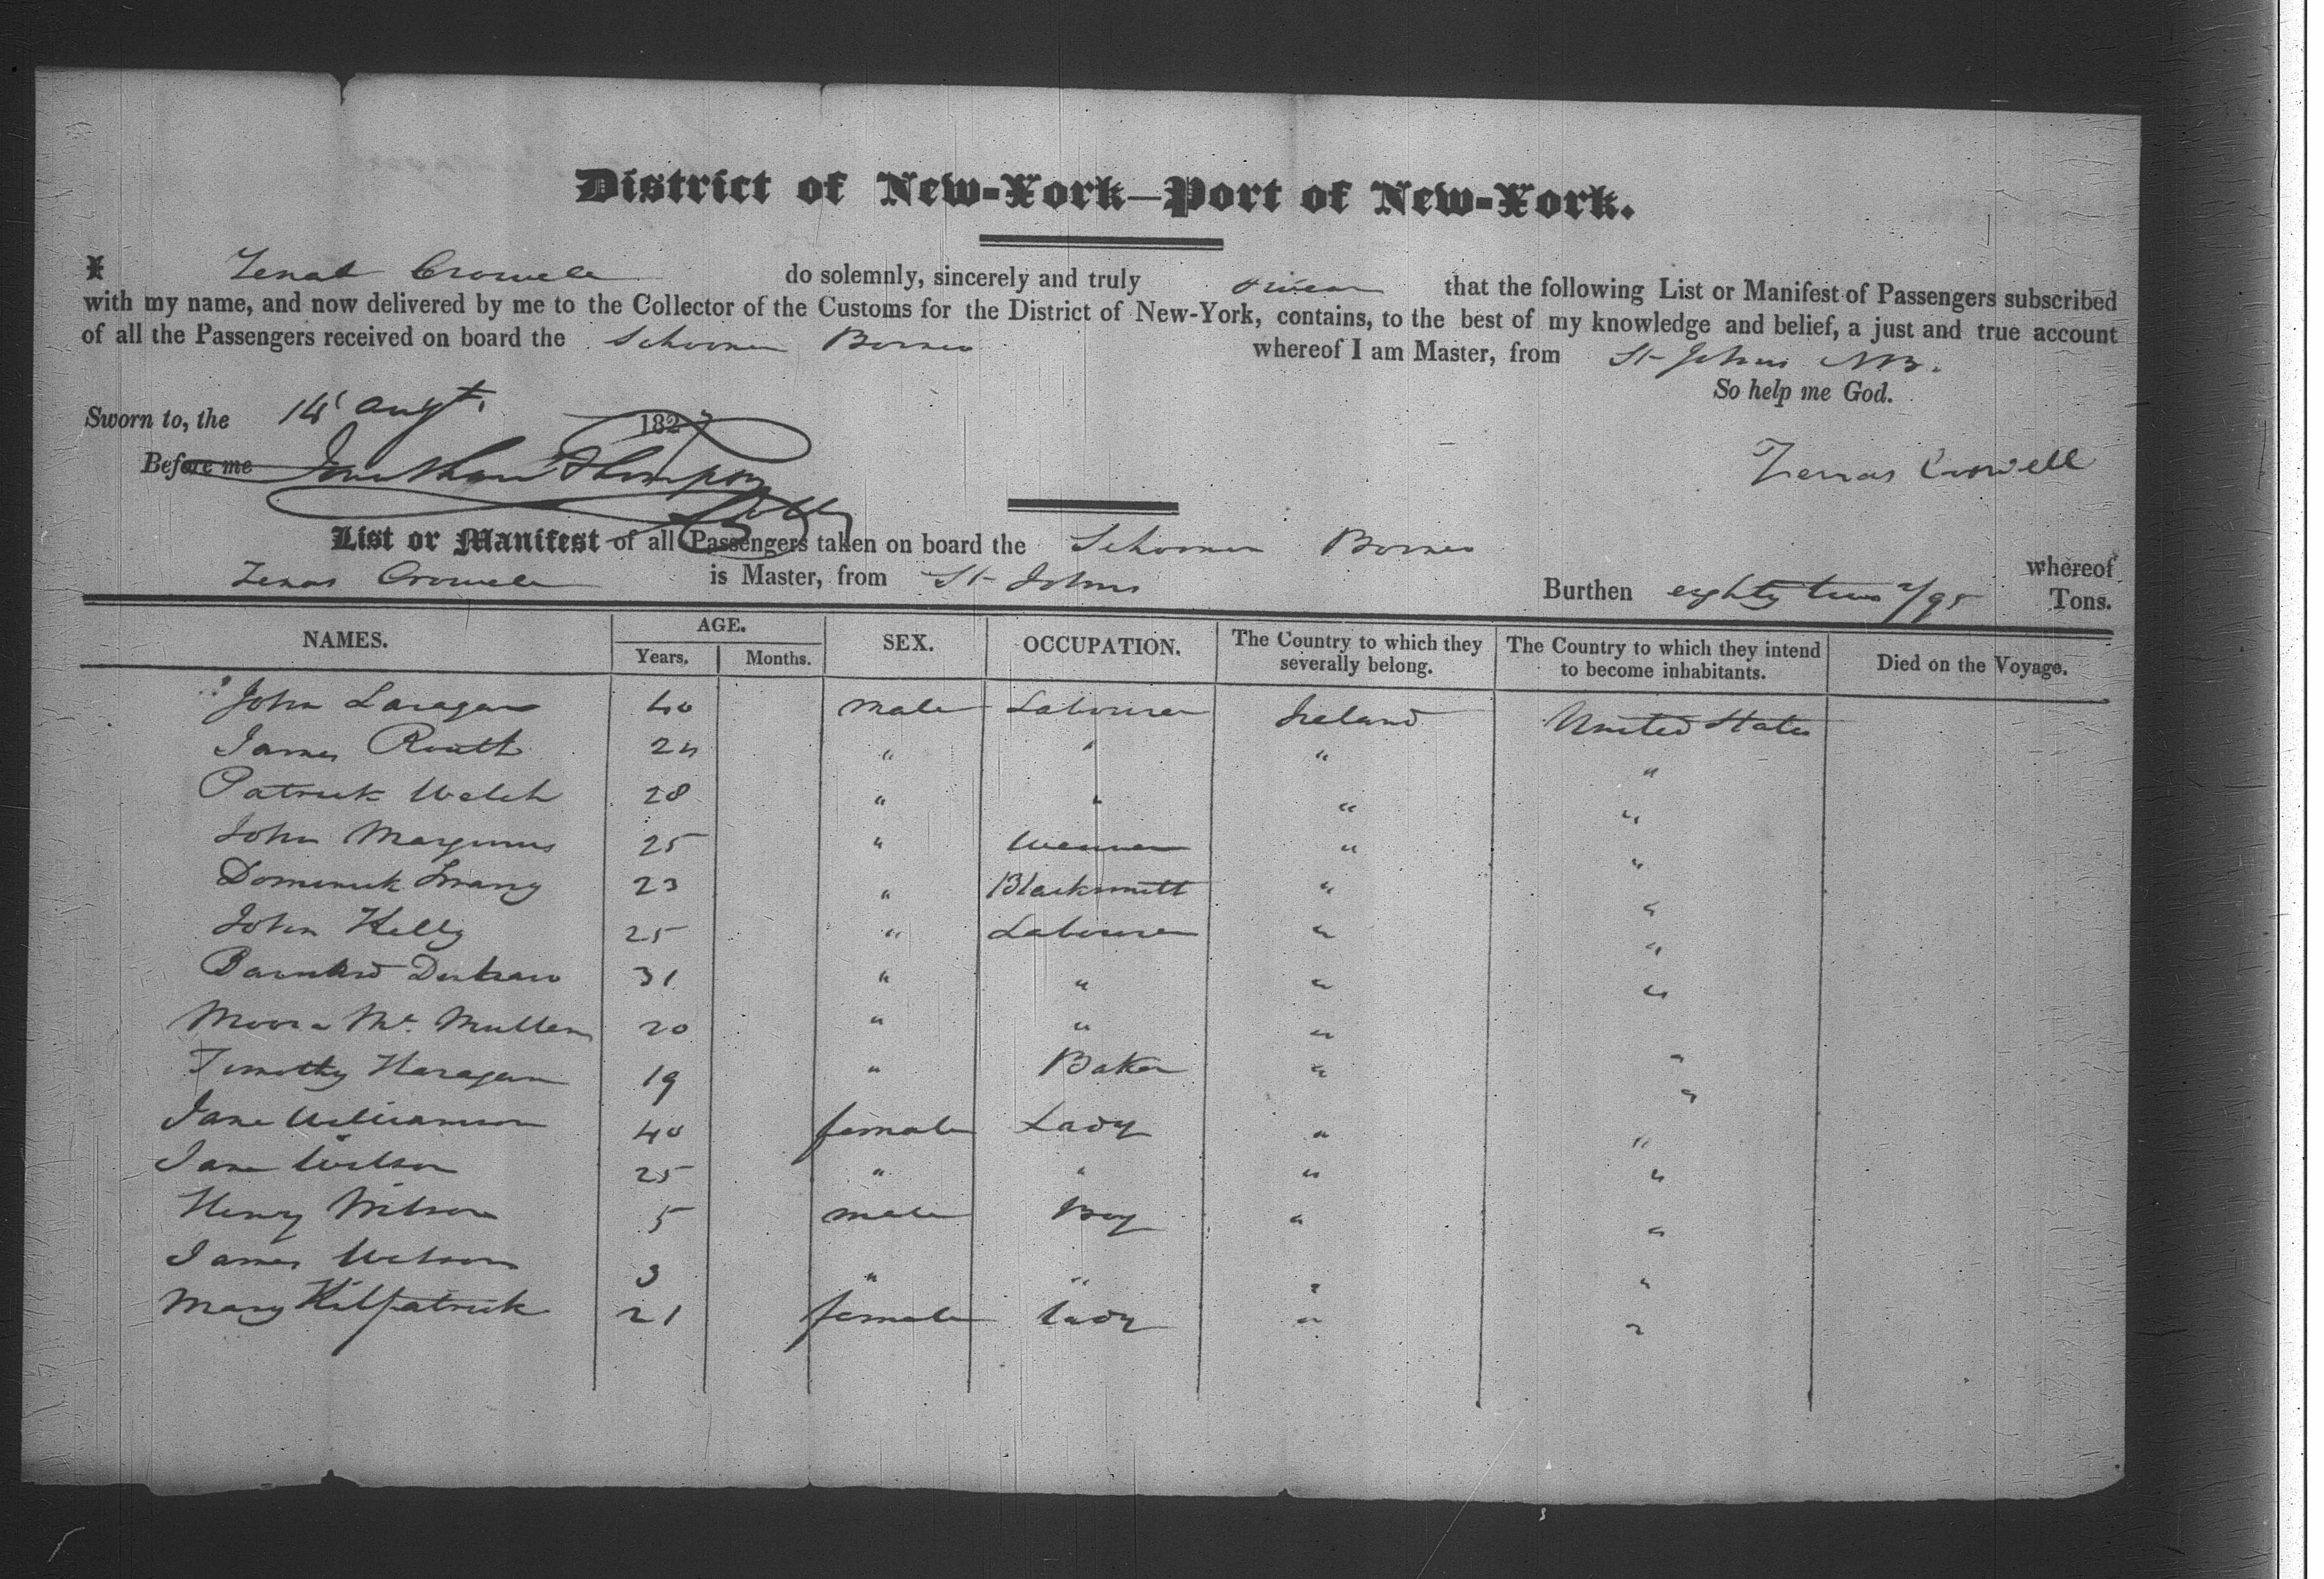 District of New-York—Port of New-York.
I Zenas Crowell do solemnly, sincerely and truly swear that the following List or Manifest of Passengers subscribed
with my name, and now delivered by me to the Collector of the Customs for the District of New-York, contains, to the best of my knowledge and belief, a just and true account
of all the Passengers received on board the Schooner Borneo whereof I am Master, from St Johns NB.
So help me God.
Sworn to, the 14 Augt. 1827
Before me Jonathan Thompson Zenas Crowell
Coll
List or Manifest of all Passengers taken on board the Schooner Borneo whereof
Zenas Crowell is Master, from St Johns Burthen eighty two 2/95 Tons.
NAMES. AGE. SEX. OCCUPATION. The Country to which they severally belong. The Country to which they intend to become inhabitants. Died on the Voyage.
Years. Months.
John Laragan 40 male Labourer Ireland United States
James Routh 24 " " " "
Patrick Welch 28 " " " "
John 25 " Weaver " "
Domenick 23 " Blacksmith " "
John Kelly 25 " Labourer " "
Barnard 31 " " " "
Moore Mc. Mullen 20 " " " "
Timothy Haragan 19 " Baker " "
Jane Williamson 40 female Lady " "
Jane Wilson 25 " " " "
Henry Wilson 5 male Boy " "
James Wilson 3 " " " "
Mary Kilpatrick 21 female Lady " "